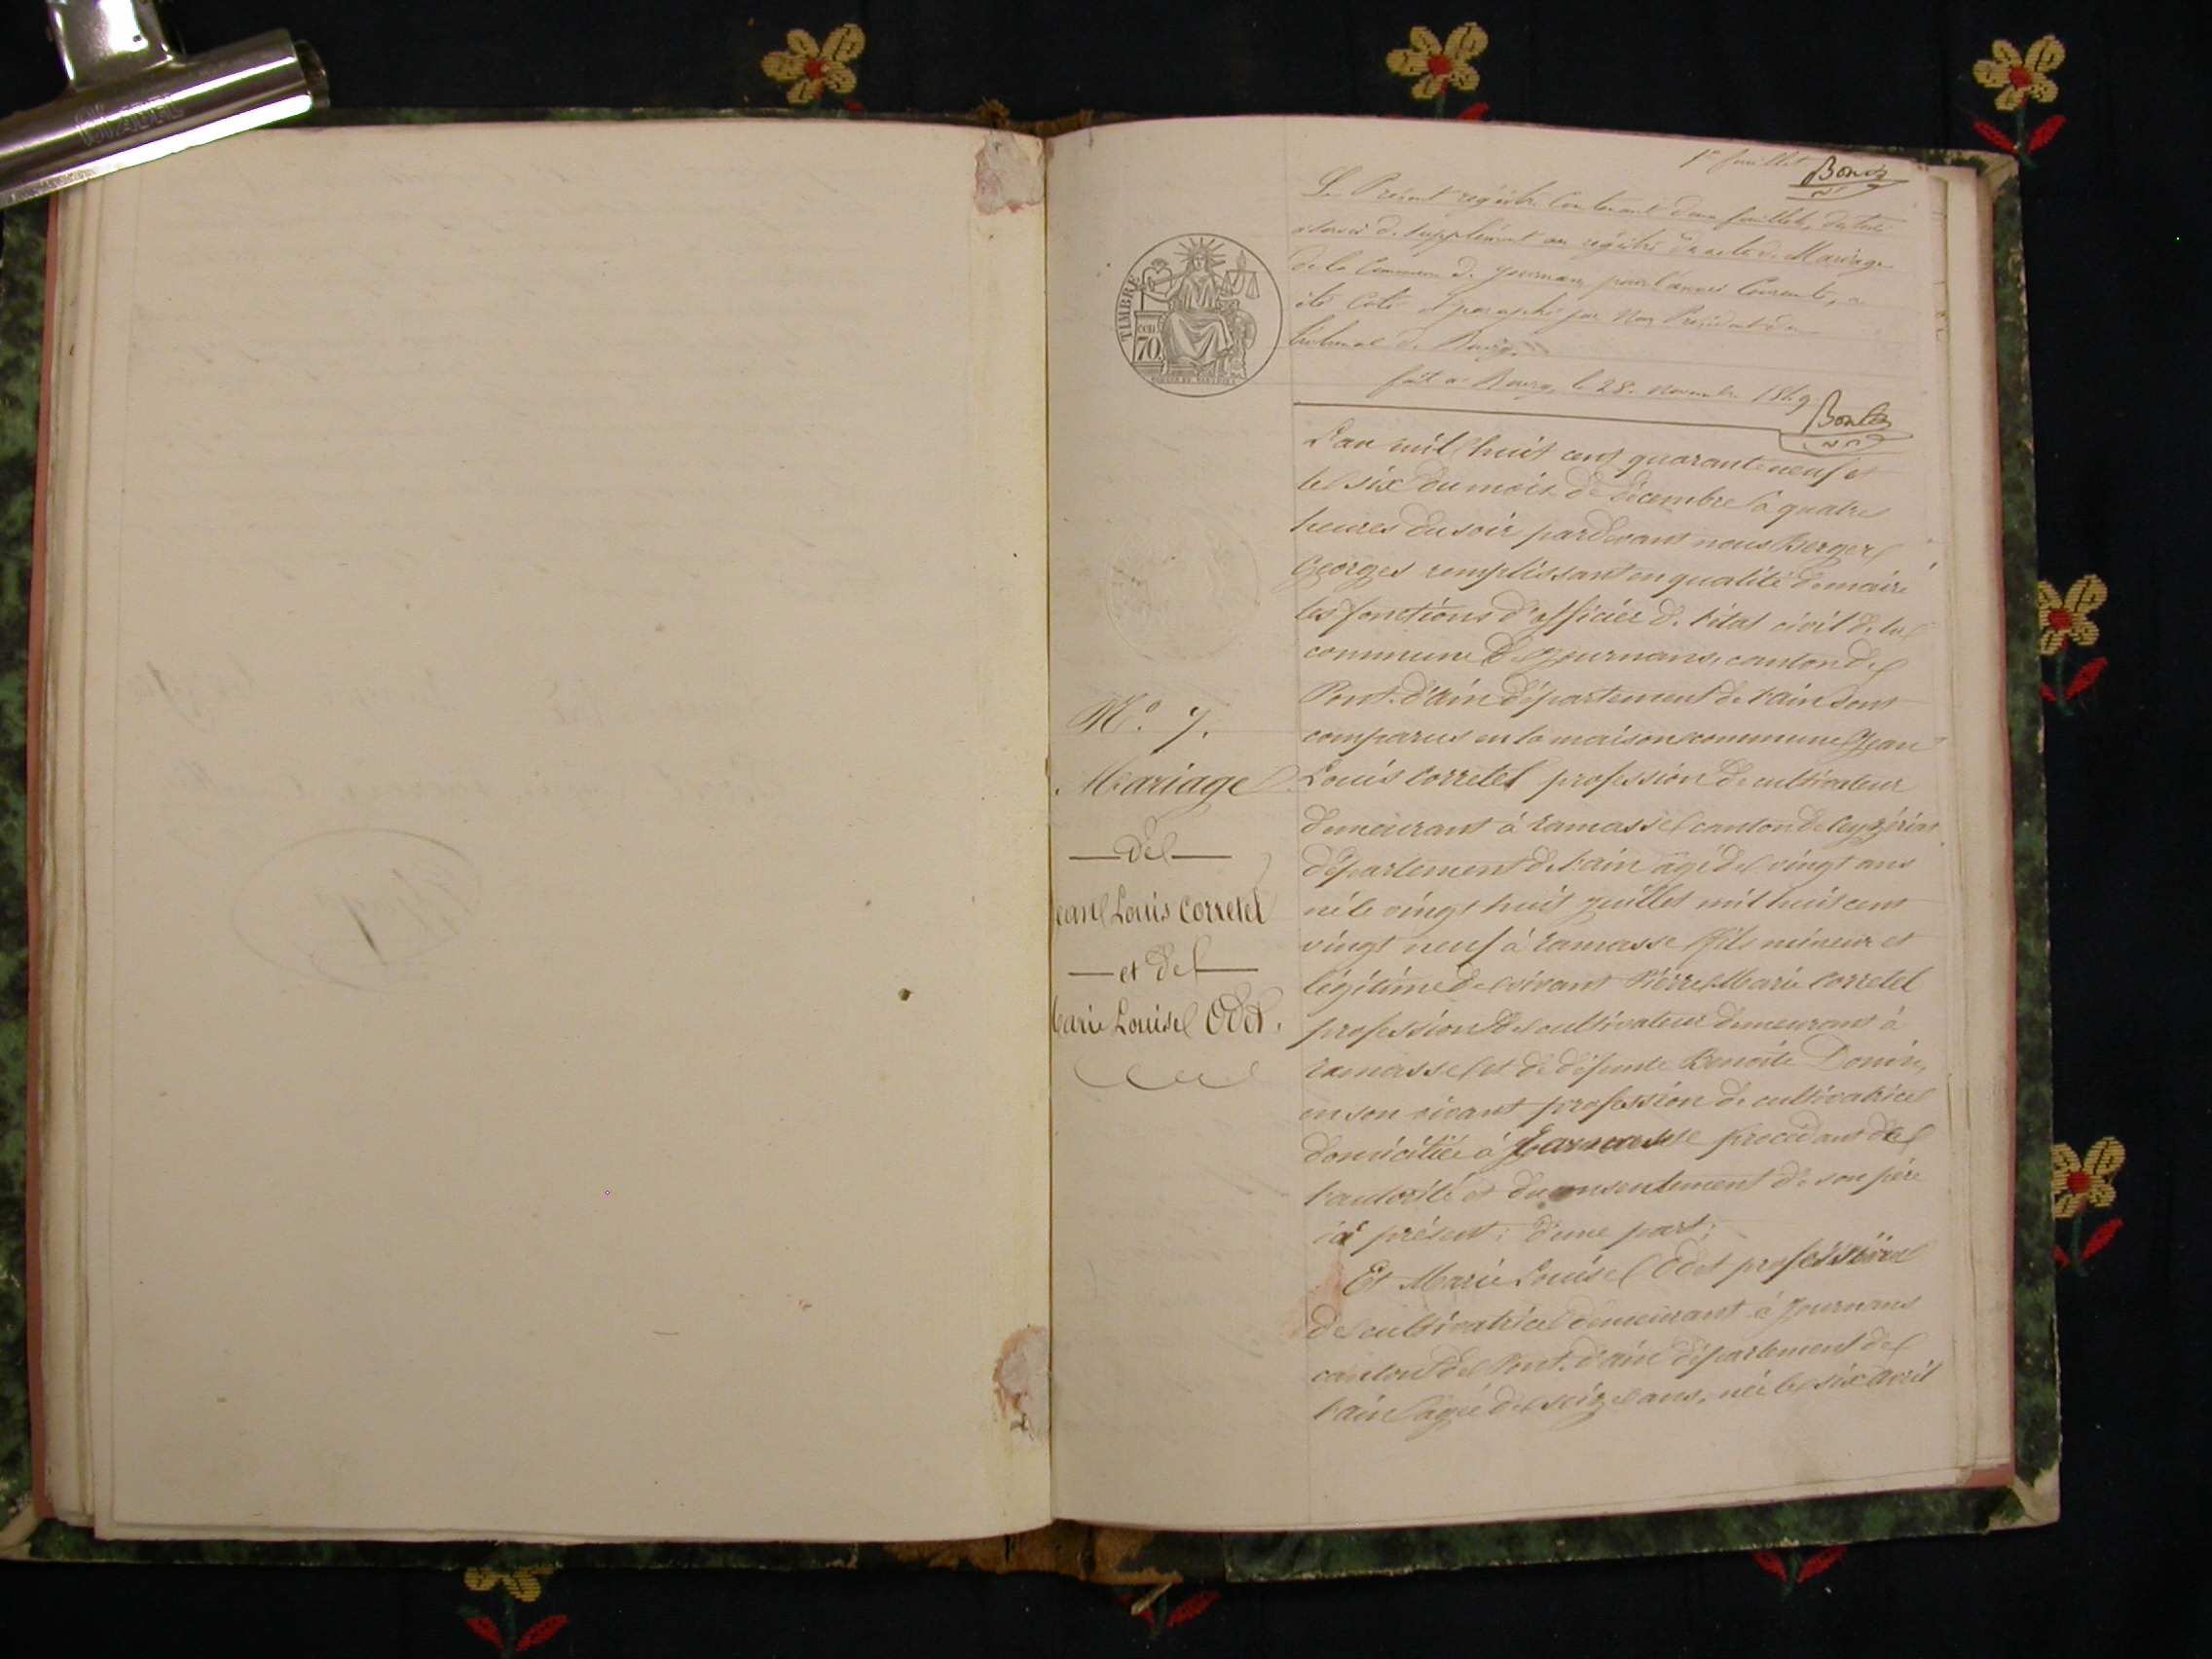 1er feuillet
Le Présent registre Contenant deux feuillets, destiné
à servir de supplément au registre des actes de Mariage
de la Commune de Journans pour l'année Courante, a
été Coté et paraphé par Nous Président du
tribunal de Bourg.
fait à Bourg, le 28. novembre 1849
TIMBRE
70
N.o 7.
Mariage
de
Jean Louis Corretel
et de
Marie Louise Odet.
L'an mil huit cent quarante neuf et
le six du mois de décembre à quatre
heures du soir pardevant nous Berger
Georges remplissant en qualité de maire
les fonctions d'officier de l'état civil de la
commune de Journans, canton de
Pont-d'ain département de l'ain sont
comparus en la maison commune Jean
Louis Corretel profession de cultivateur
demeurant à ramasse canton de Ceyzériat
département de l'ain âgé de vingt ans
né le vingt huit juillet mil huit cent
vingt neuf à ramasse fils mineur et
légitime de vivant Pierre Marie Corretel
profession de cultivateur demeurant à
ramasse et de défunte Benoite Donin,
en son vivant profession de cultivatrice
domiciliée à Ramasse procédant de
l'autorité et du consentement de son père
ici présent; d'une part;
Et Marie Louise Odet profession
de cultivatrice demeurant à Journans
canton de Pont-d'ain département de
l'ain âgée de seize ans, née le six avril